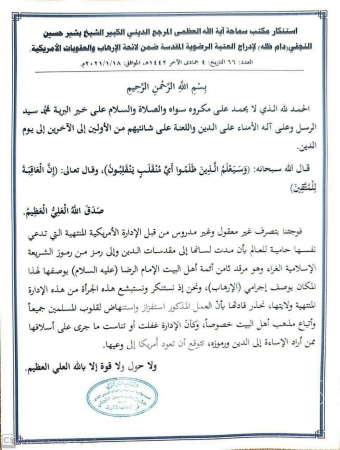 استنكار مكتب سماحة آية الله العظمى المرجع الديني الكبير الشيخ بشير حسين
النجفي (دام ظله) لإدراج العتبة الرضوية المقدسة ضمن لائحة الإرهاب والعقوبات الأمريكية.
العدد: ٦٦ التاريخ: ٤ جمادى الآخر ١٤٤٢هـ، الموافق: ٢٠٢١/١/١٨م
بِسْمِ اللهِ الرَّحْمنِ الرَّحِيمِ
الحمد لله الذي لا يحمد على مكروه سواه والصلاة والسلام على خير البرية محمد سيد
الرسل وعلى آله الأمناء على الدين واللعنة على شانئيهم من الأولين إلى الآخرين إلى يوم
الدين.
قال الله سبحانه: (وَسَيَعْلَمُ الَّذِينَ ظَلَمُوا أَيَّ مُنْقَلَبٍ يَنْقَلِبُونَ)، وقال تعالى: (إِنَّ الْعَاقِبَةَ
لِلْمُتَّقِينَ)
صَدَقَ اللهُ العَلِيُّ العَظِيمُ.
فوجئنا بتصرف غير معقول وغير مدروس من قبل الإدارة الأمريكية المنتهية التي تدعي
نفسها حامية للعالم بأن مدت لسانها إلى مقدسات الدين وإلى رمز من رموز الشريعة
الإسلامية الغراء وهو مرقد ثامن أئمة أهل البيت الإمام الرضا (عليه السلام) بوصفها لهذا
المكان بوصف إجرامي (الإرهاب)، ونحن إذ نستنكر ونستبشع هذه الجرأة من هذه الإدارة
المنتهية ولايتها، نحذر قادتها بأنّ العمل المذكور استفزاز واستنهاض لقلوب المسلمين جميعاً
وأتباع مذهب أهل البيت خصوصاً، وكأنّ الإدارة غفلت أو تناست ما جرى على أسلافها
ممن أراد الإساءة إلى الدين ورموزه، نتوقع أن تعود أمريكا إلى وعيها.
ولا حول ولا قوة إلا بالله العلي العظيم.